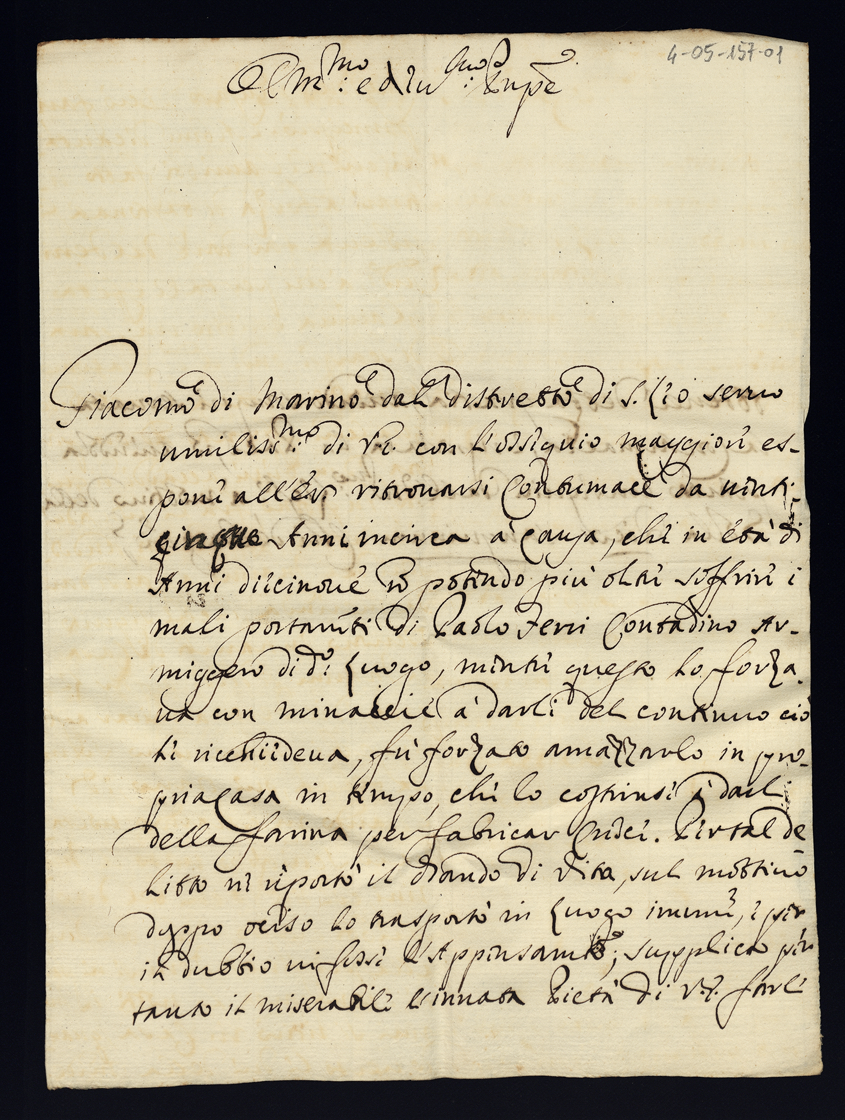 4-05-157-01
Ill.mo: e Rev.mo: Sup.e
Giacomo di Marino dal distretto di S. Leo servo
umiliss.mo: di V.E. con l'ossequio maggiore es-
pone all'E.V. ritrovarsi Contumace da vinti-
cinque Anni incirca a causa, che in età di
Anni diecinove nõ potendo più oltre soffrire i
mali portam.ti di Paolo Ferri Contadino Ar-
miggero di d.o Luogo, mentre questo lo forza-
va con minaccie a darli del continuo ciò
li richiedeva, fù forzato amazzarlo in pro-
pria Casa in tempo, che lo costrinse à darli
della farina per fabricar Cridei. Per tal de-
litto ne riportò il Bando di Vita, sul mottivo
doppo ociso lo trasportò in Luogo imune, e per
il dubbio vi fosse l'Appensam.to; supplica per-
tanto il miserabile l'innata Pietà di V.E. farli